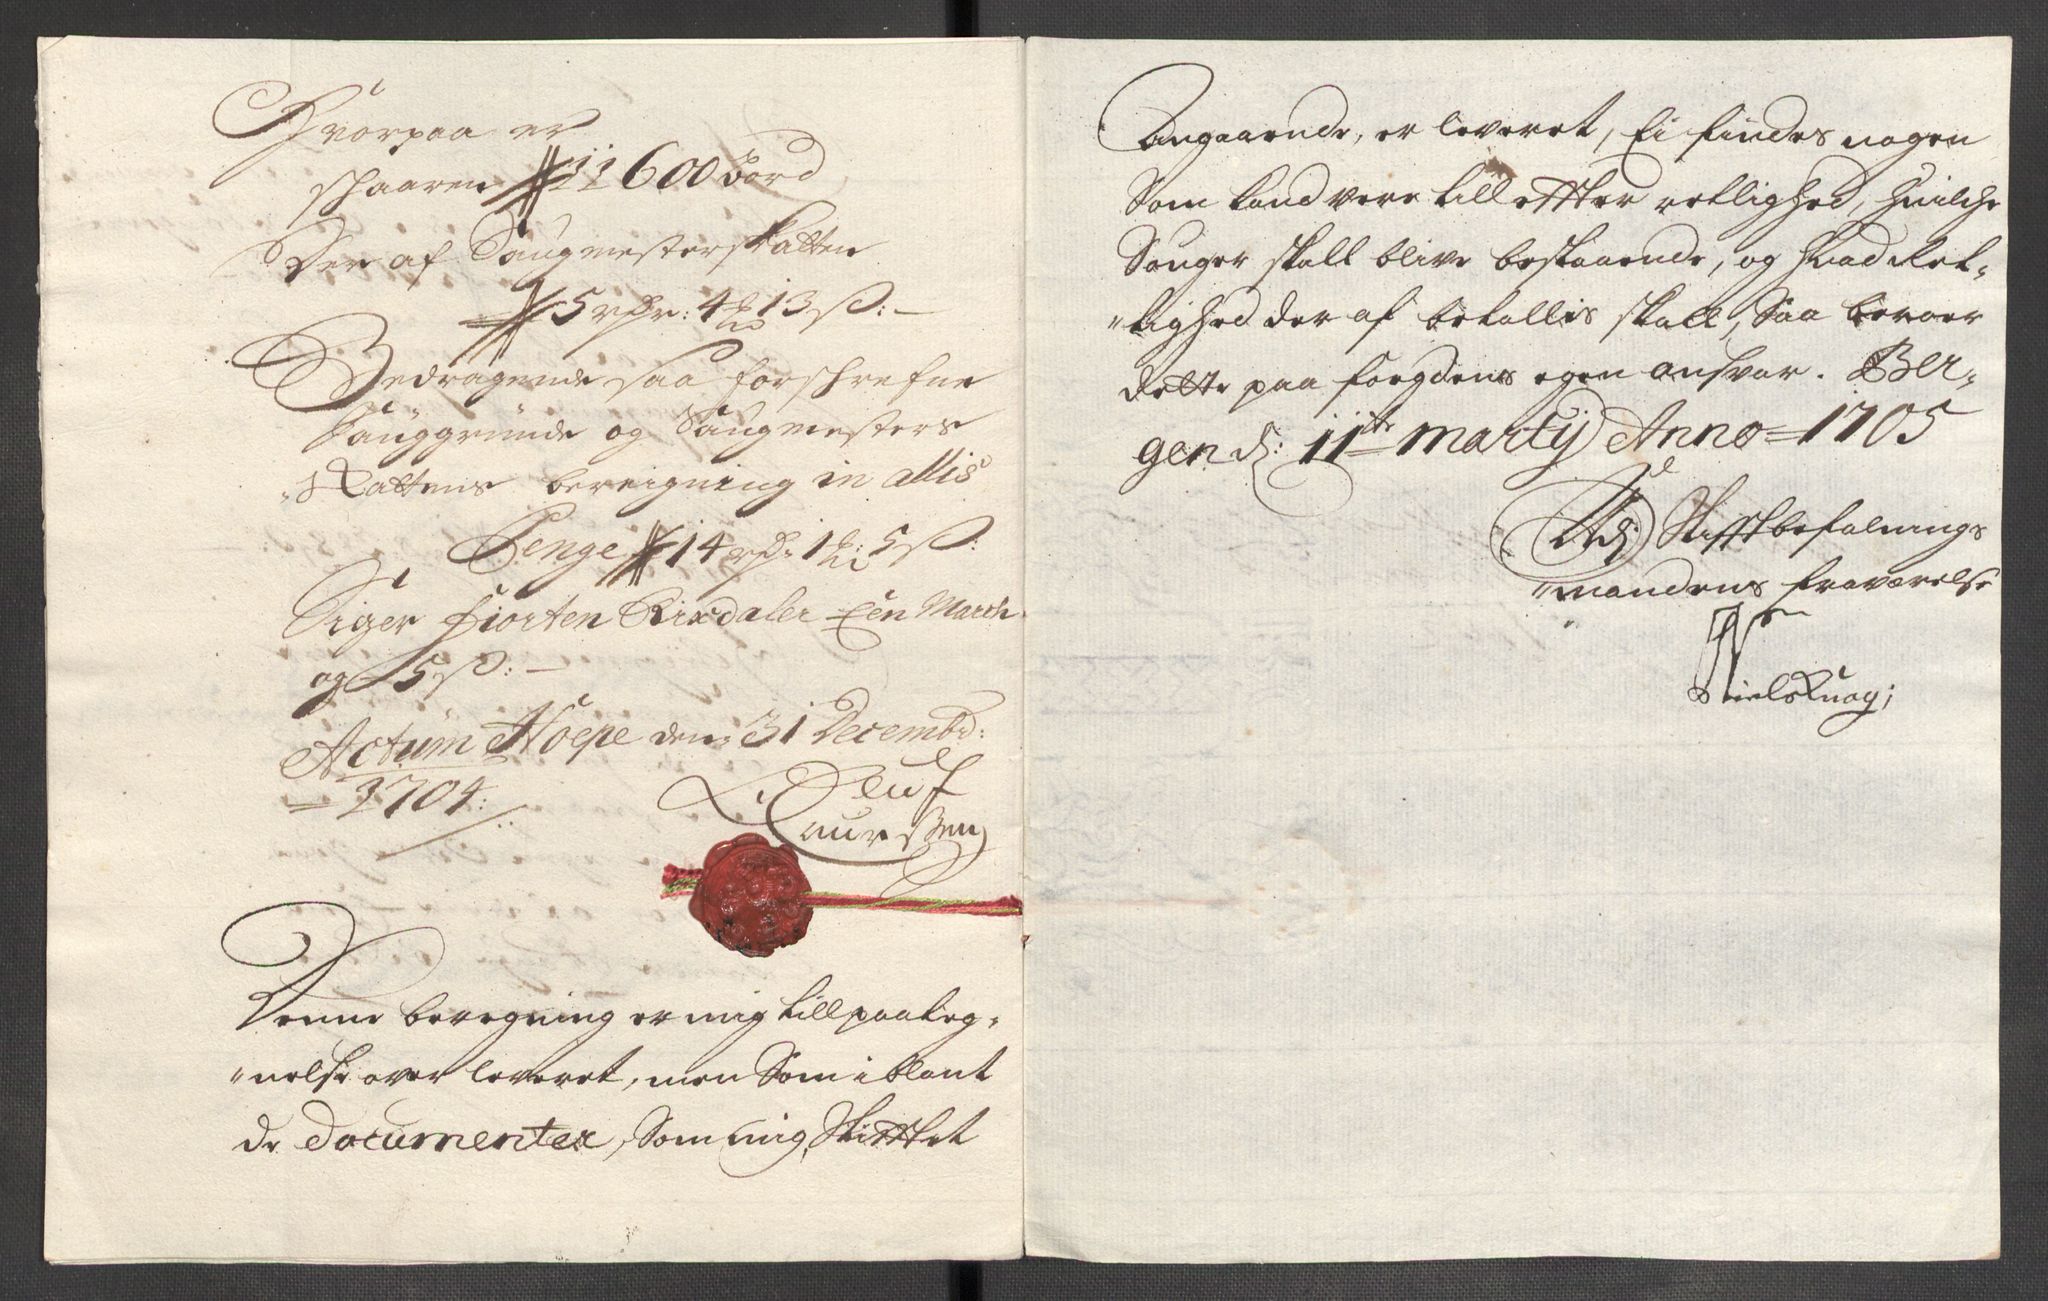 Hvorpaa er
schaaren # 11600 bord
Der af Saugmesterskatten
# 5 rdr: 4 mk 13 ß: —
Bedragende saa forschrefne
Sauggrunde og Saugmesters
Skattens bereigning in allis
Penge # 14 rdr: 1 mk: 5 ß:
Siger fiorten Rixdaler Een March
og 5 ß: —
Actum Hoepe den 31 Decembr:
= 1704:
Oluf
Laurssen
Denne beregning er mig till paateg-
"nelse over leveret, men Som i blant
de documenter, Som mig Stifftet
angaaende, er leveret, Ei findes nogen
Som kand vere till effter retlighed, huilche
Sauger skall blive bestaaende, og hvad Ret-
"tighed der af betallis skall, Saa beroer
dette paa foegdens egen ansvar. Ber-
gen d: 11te Martij Anno = 1705
Udi Stifftbefalnings
"mandens fraværelse
Niels Knag;